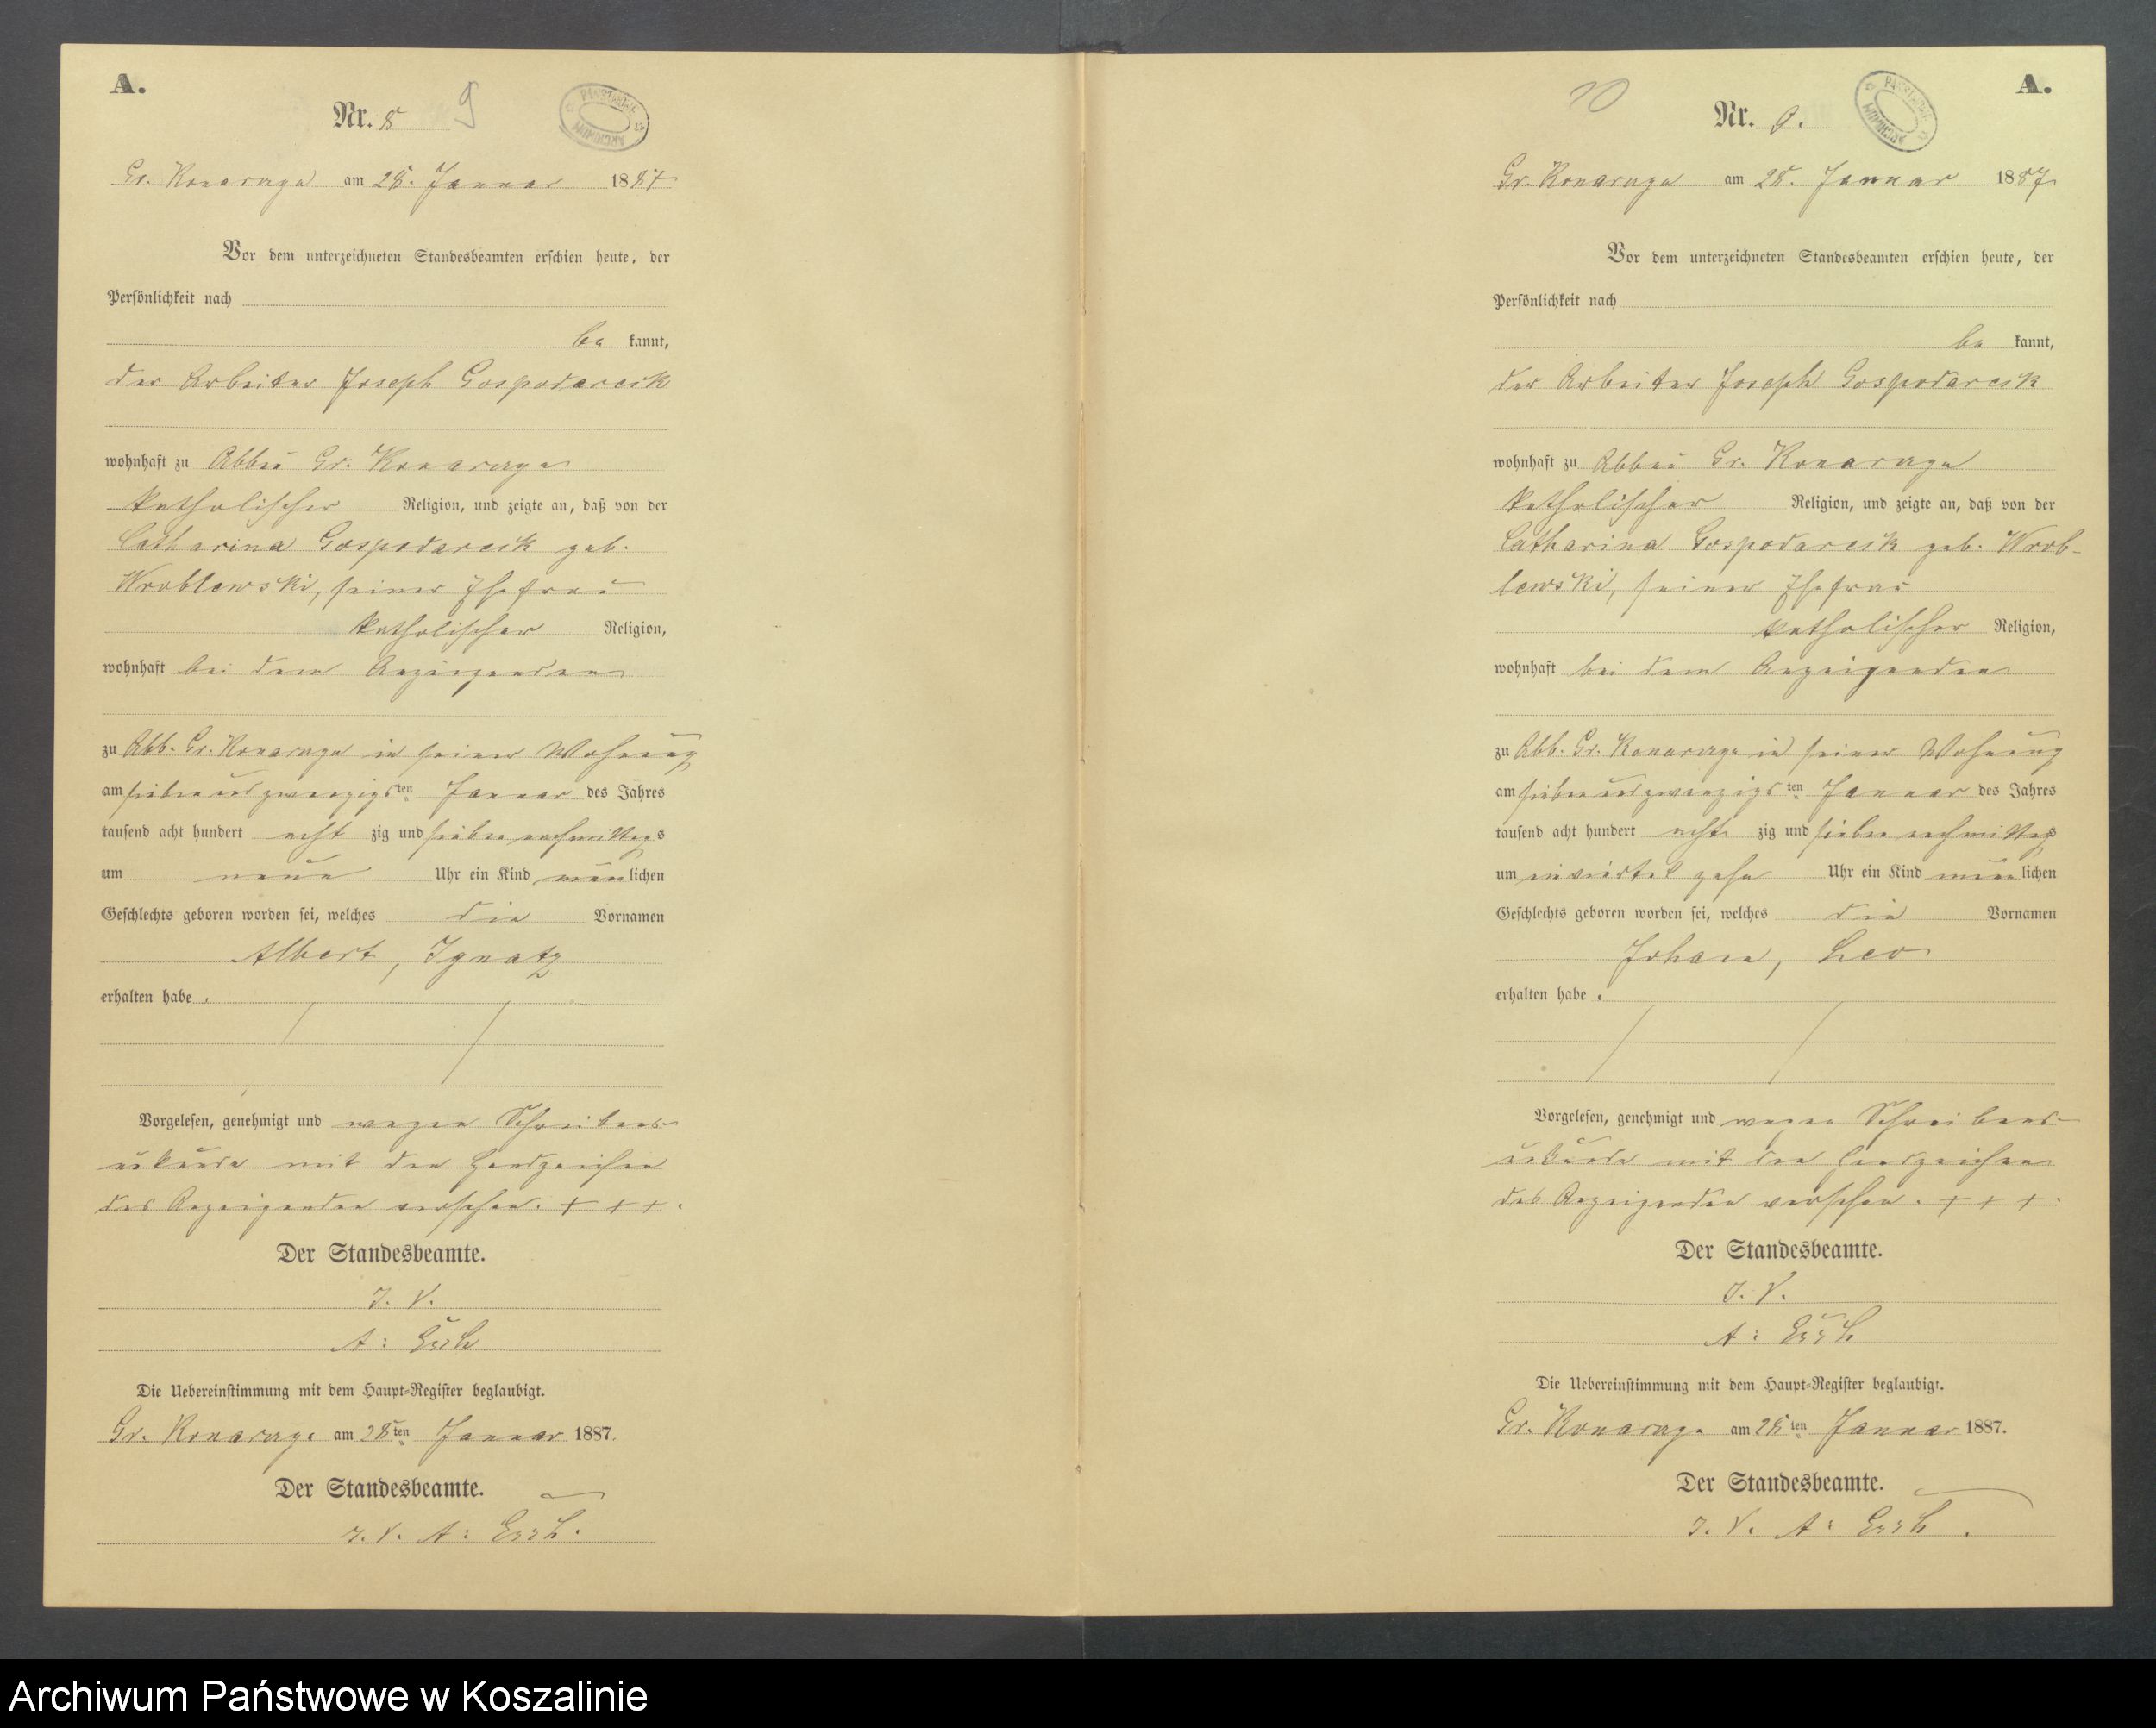 A.
Nr. 8 9
PAŃSTWOWE ARCHIWUM
Gr. Konarzyn am 28. Januar 1887
Vor dem unterzeichneten Standesbeamten erschien heute, der
Persönlichkeit nach
be kannt,
der Arbeiter Joseph Gospodarcik
wohnhaft zu Abbau Gr. Konarzyn
katholischer Religion, und zeigte an, daß von der
Catharina Gospodarcik geb.
Wroblewski, seiner Ehefrau
katholischer Religion,
wohnhaft bei dem Anzeigenden
zu Abb. Gr. Konarzyn in seiner Wohnung
am siebenundzwanzigsten Januar des Jahres
tausend acht hundert acht zig und sieben nachmittags
um neun Uhr ein Kind männlichen
Geschlechts geboren worden sei, welches die Vornamen
Albert, Ignatz
erhalten habe.
Vorgelesen, genehmigt und wegen Schreibens-
unkunde mit den Handzeichen
des Anzeigenden versehen. + + +.
Der Standesbeamte.
J. V.
A:
Die Uebereinstimmung mit dem Haupt-Register beglaubigt.
Gr. Konarzyn am 28ten Januar 1887.
Der Standesbeamte.
J. V. A:
10 A.
Nr. 9.
PAŃSTWOWE ARCHIWUM
Gr. Konarzyn am 28. Januar 1887
Vor dem unterzeichneten Standesbeamten erschien heute, der
Persönlichkeit nach
be kannt,
der Arbeiter Joseph Gospodarcik
wohnhaft zu Abbau Gr. Konarzyn
katholischer Religion, und zeigte an, daß von der
Catharina Gospodarcik geb. Wrob-
lewski, seiner Ehefrau
katholischer Religion,
wohnhaft bei dem Anzeigenden
zu Abb. Gr. Konarzyn in seiner Wohnung
am siebenundzwanzigsten Januar des Jahres
tausend acht hundert acht zig und sieben nachmittags
um einviertel zehn Uhr ein Kind männlichen
Geschlechts geboren worden sei, welches die Vornamen
Johann, Leo
erhalten habe.
Vorgelesen, genehmigt und wegen Schreibens-
unkunde mit den Handzeichen
des Anzeigenden versehen. + + +.
Der Standesbeamte.
J. V.
A:
Die Uebereinstimmung mit dem Haupt-Register beglaubigt.
Gr. Konarzyn am 28ten Januar 1887.
Der Standesbeamte.
J. V. A:
Archiwum Państwowe w Koszalinie